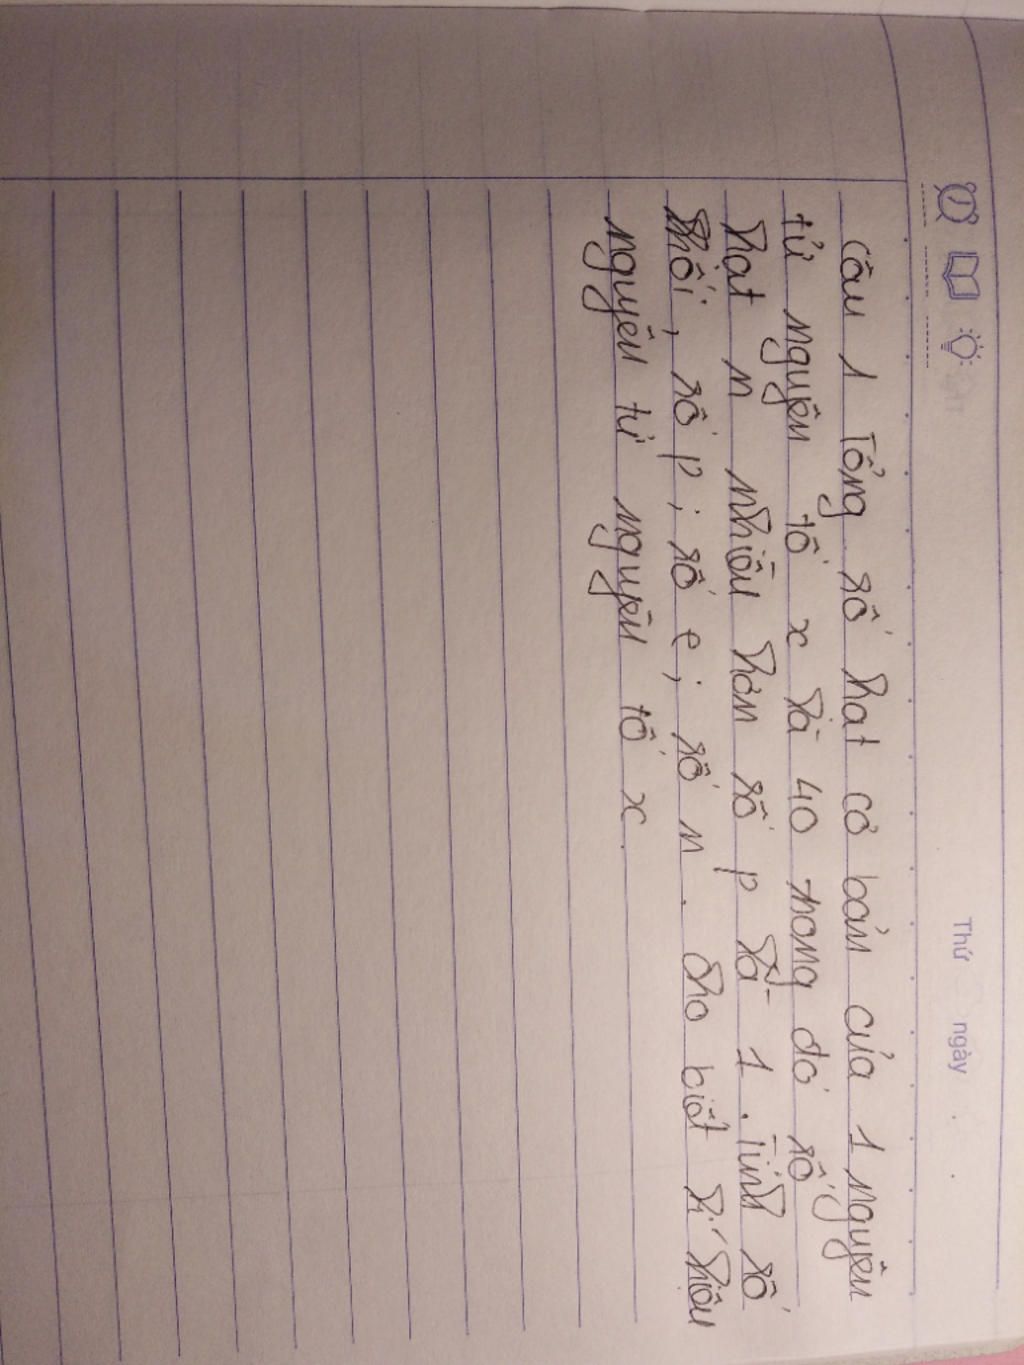 Thứ ngày
Câu 1 Tổng số hạt cơ bản của 1 nguyên
tử nguyên tố x là 40 trong đó số
hạt n nhiều hơn số p là 1. Tính số
khối, số p; số e; số n. Cho biết kí hiệu
nguyên tử nguyên tố x.